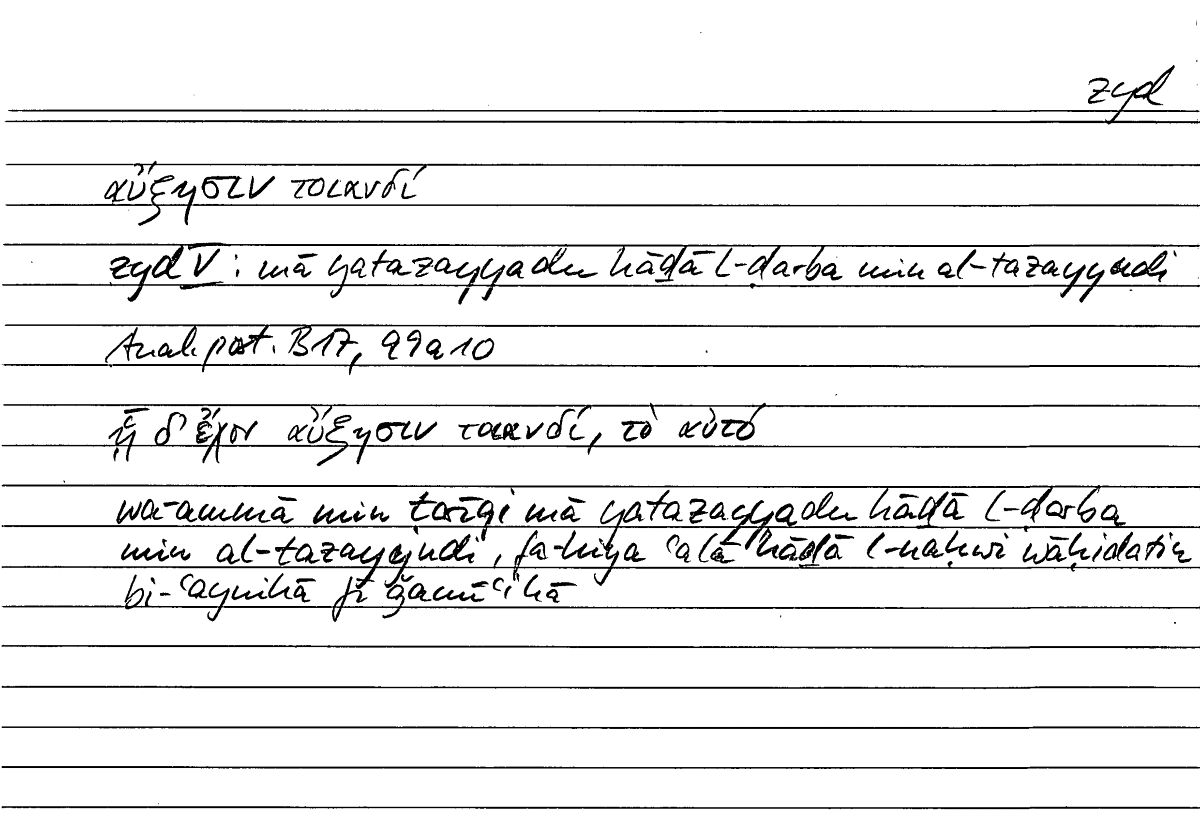 zyd
αὔξησιν τοιανδί
zyd V : mā yatazayyadu hāḏā l-ḍarba min al-tazayyudi
Anal. post. B17, 99a10
ᾗ δ' ἔχον αὔξησιν τοιανδί, τὸ αὐτό
wa-ammā min ṭarīqi mā yatazayyadu hāḏā l-ḍarba
min al-tazayyudi, fa-hiya ʿalā hāḏā l-naḥwi wāḥidatin
bi-ʿaynihā fī ǧamīʿihā